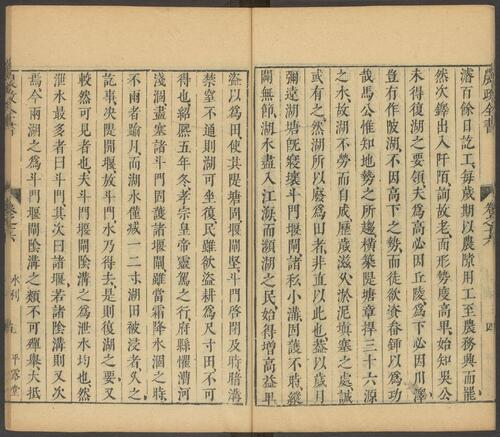 濬百餘日訖工每歲期以農隙用工至農務興而罷
然次鐸出入阡陌詢故老而形勢度高卑始知吳公
未得復湖之要領夫爲高必因丘陵爲下必因川澤
豈有作陂湖不因高下之勢而徒欲資畚鍤以爲功
哉馬公惟知地勢之所趨橫築隄塘章捍三十六源
之水故湖不勞而自成歷歲滋久淤泥填塞之處誠
或有之然湖所以廢爲田者非直以此也葢以歲月
彌遠湖塘旣寖壞斗門堰閘諸私小溝固護不時縱
閘無節湖水盡入江海而瀕湖之民始得增高益卑
盜以爲田使其隄塘固堰閘堅斗門啓閉及時暗溝
禁窒不通則湖可坐復民雖欲盜耕爲尺寸田不可
得也紹熙五年冬孝宗皇帝靈駕之行府縣懼漕河
淺涸盡塞諸斗門固護諸堰閘雖當霜降水涸之時
不雨者踰月而湖水僅減一二寸湖田被浸者久之
訖事決隄開堰放斗門水乃得去是則復湖之要又
較然可見者也夫斗門堰閘陰溝之爲泄水均也然
泄水最多者曰斗門其次曰諸堰若諸陰溝則又次
焉今兩湖之爲斗門堰閘陰溝之類不可殫舉大抵
農政全書
水利
平露堂